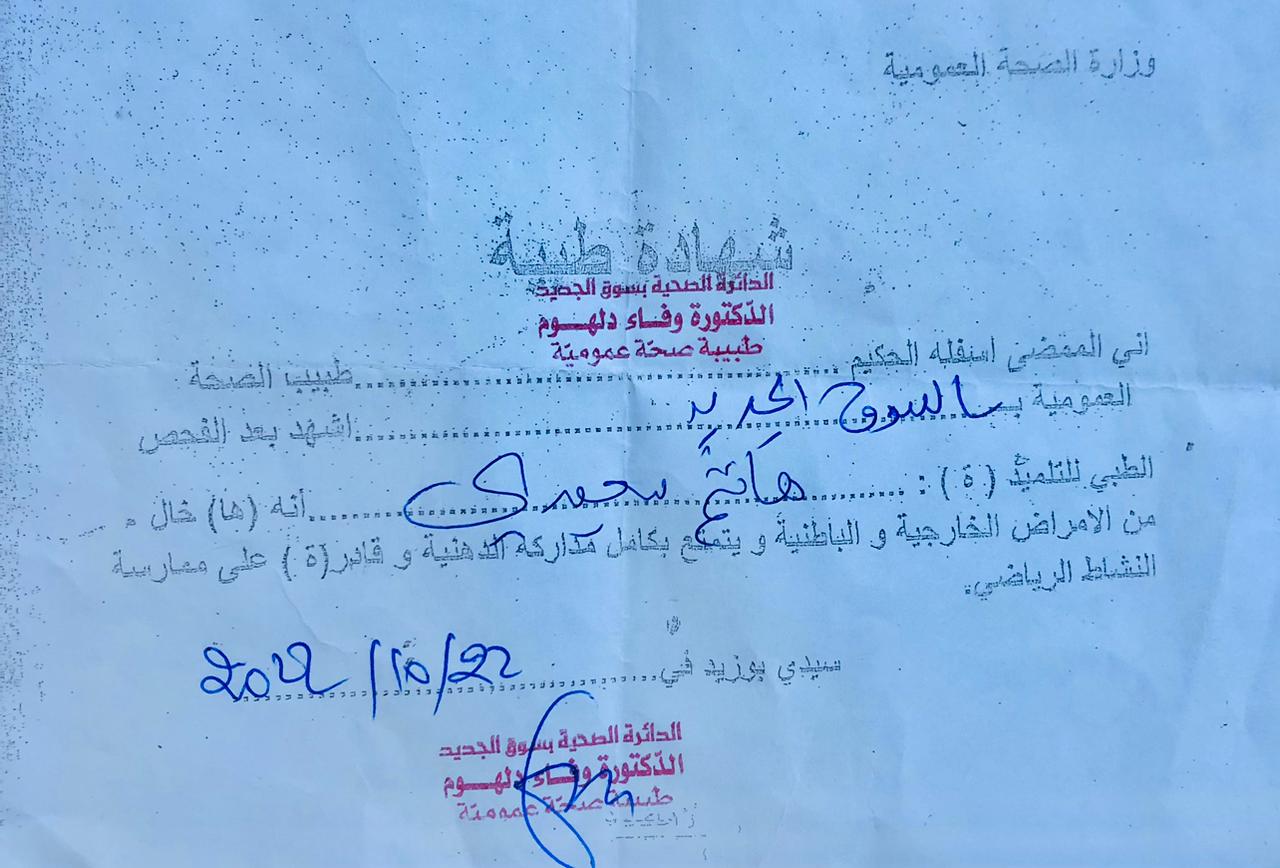 وزارة الصحة العمومية
شهادة طبية
الدائرة الصحية بسوق الجديد
الدّكتورة وفاء دلهوم
طبيبة صحّة عموميّة
اني الممضي اسفله الحكيم ........ طبيب الصحة
العمومية بـ السوق الجديد ........ اشهد بعد الفحص
الطبي للتلميذ ( ة ) : ........ هاتم ........ أنه (ها) خال
من الامراض الخارجية و الباطنية و يتمتع بكامل مداركه الذهنية و قادر(ة ) على ممارسة
النشاط الرياضي.
سيدي بوزيد في ........ 22/10/2022
الدائرة الصحية بسوق الجديد
الدّكتورة وفاء دلهوم
طبيبة صحّة عموميّة